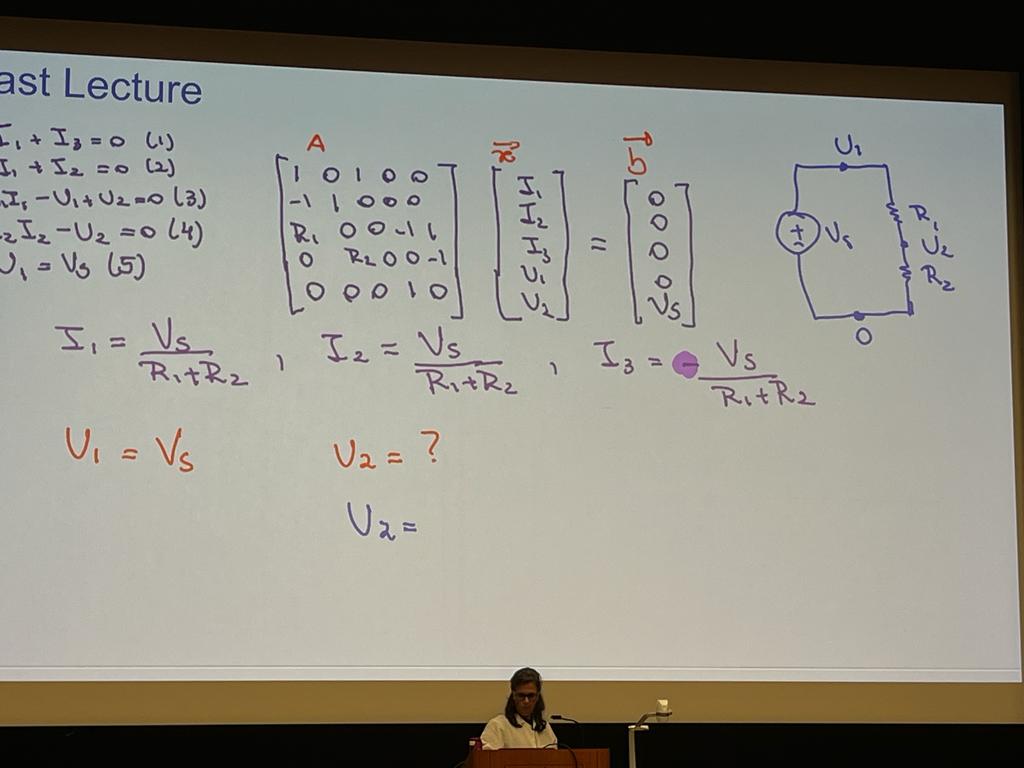 ast Lecture
I₁ + I₃ = 0 (1)
I₁ + I₂ = 0 (2)
I₁ - U₁ + U₂ = 0 (3)
₂I₂ - U₂ = 0 (4)
U₁ = Vs (5)
A
1 0 1 0 0
-1 1 0 0 0
R₁ 0 0 -1 1
0 R₂ 0 0 -1
0 0 0 1 0
x⃗
I₁
I₂
I₃
U₁
U₂
=
b⃗
0
0
0
0
Vs
U₁
+
Vs
R₁
U₂
R₂
0
I₁ = Vs / R₁+R₂ , I₂ = Vs / R₁+R₂ , I₃ = - Vs / R₁+R₂
U₁ = Vs U₂ = ?
U₂ =